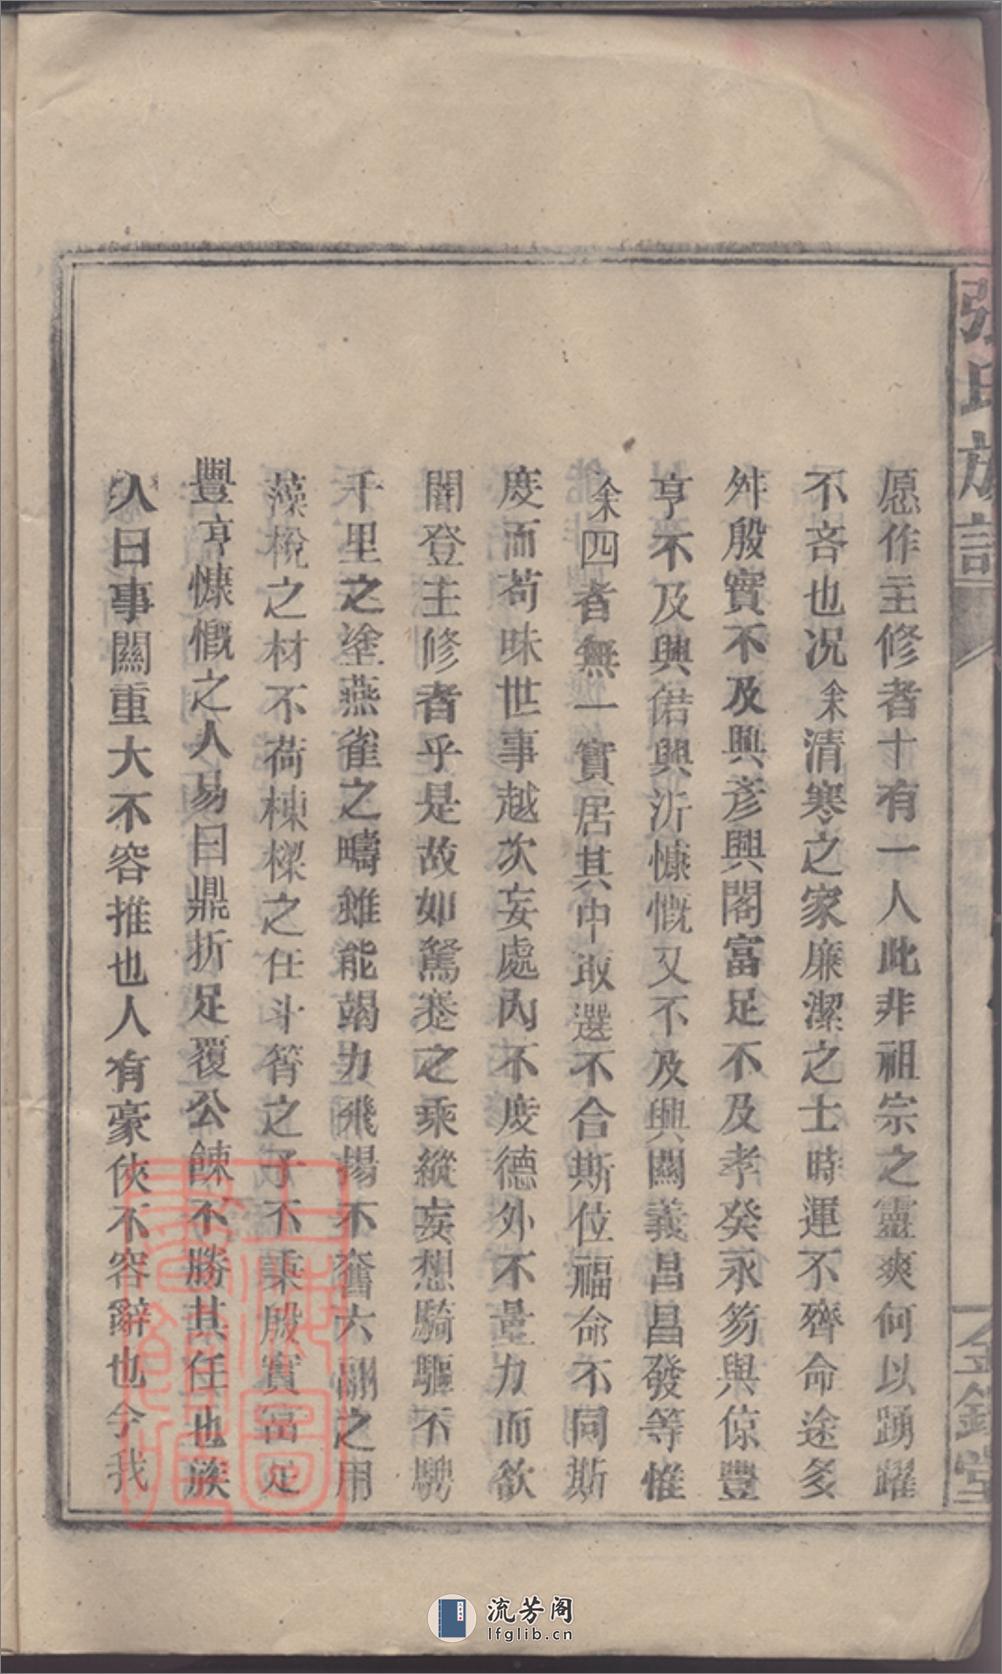 張氏族譜
金鑑堂
愿作主修者十有一人此非祖宗之靈爽何以踴躍
不吝也况余清寒之家廉潔之士時運不齊命途多
舛殷實不及興彥興閣富足不及孝癸永芴與倞豐
亨不及興偌興沂慷慨又不及興闗義昌昌發等惟
余四者無一實居其中取選不合斯位福命不同斯
度而苟昧世事越次妄處內不度德外不量力而欲
闇登主修者乎是故如駑蹇之乘縱妄想騎驅不騁
千里之塗燕雀之疇雖能竭力飛揚不奮六翮之用
藻梲之材不荷棟樑之任斗筲之子不乘殷實富足
豐亨慷慨之人易曰鼎折足覆公餗不勝其任也族
人曰事闗重大不容推也人有豪俠不容辭也今我
上海圖書館藏
流芳阁
lfglib.cn